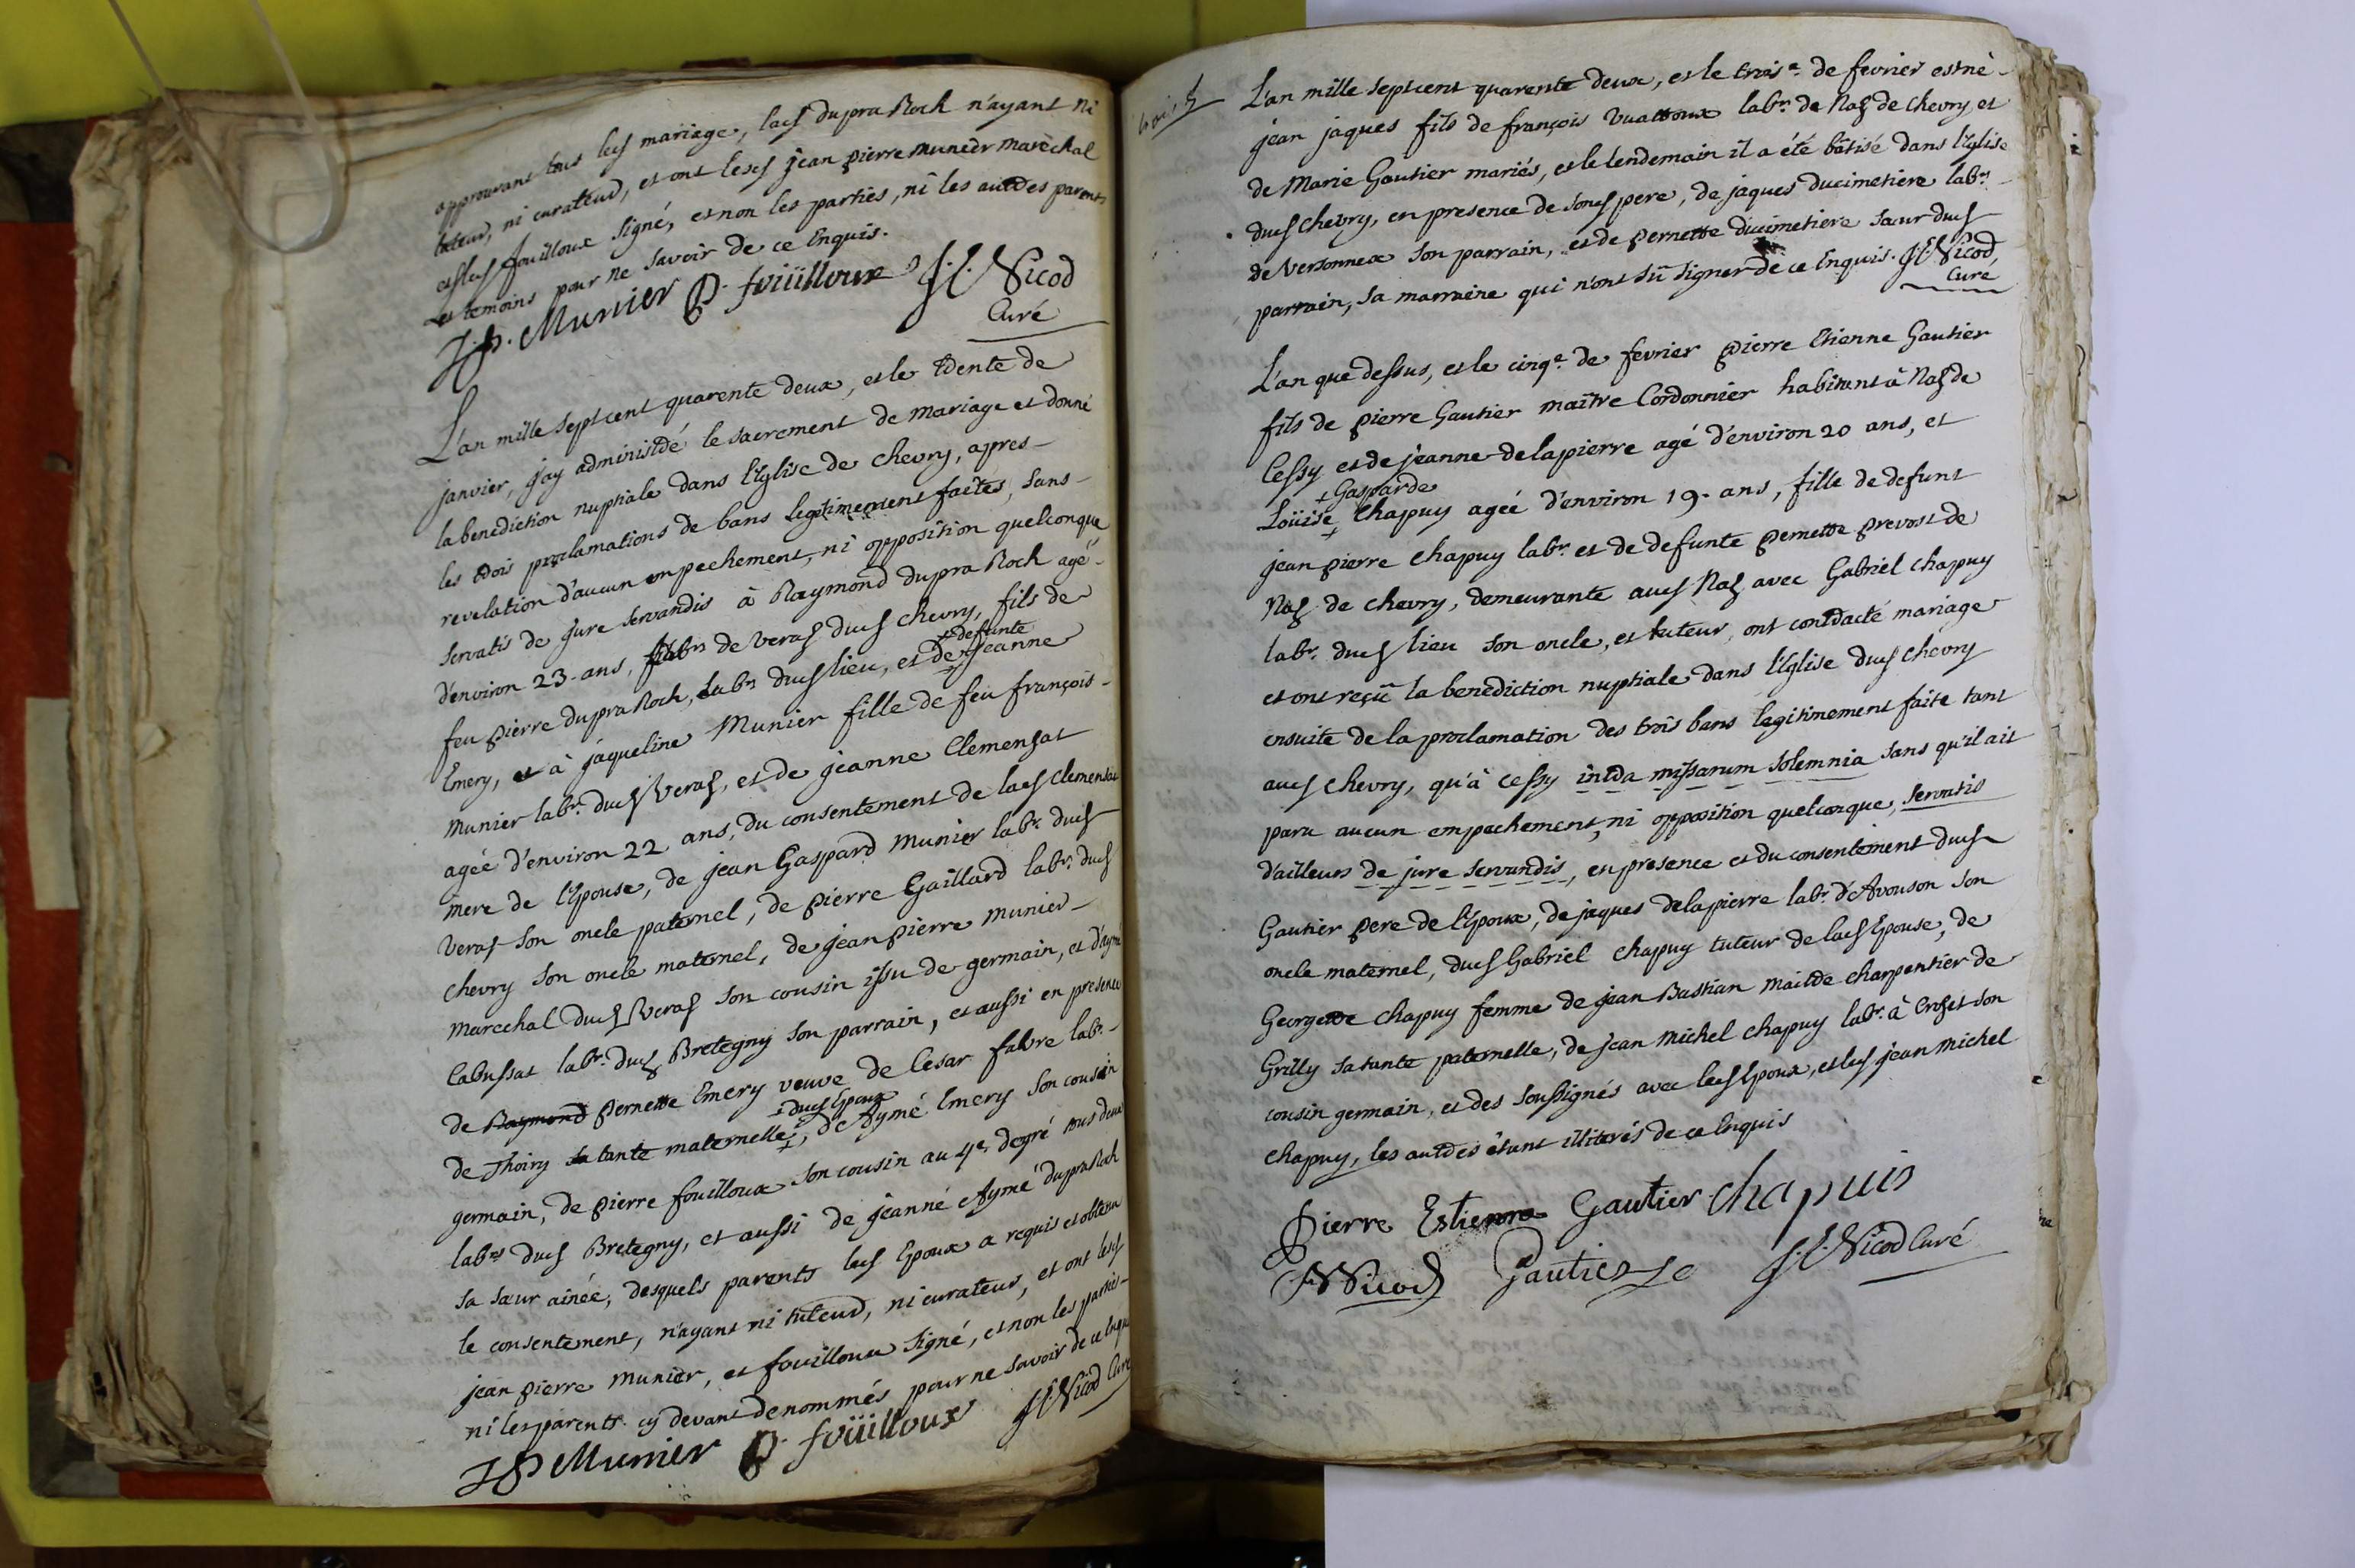 approuvant tous led mariage, lad dupraRoch n'ayant ni
tuteur, ni curateur, et ont lesd jean pierre munier maréchal
et led fouilloux signé, et non les parties, ni les autres parents
et temoins pour ne savoir de ce Enquis.
J.P. Munier P. foüilloux J.C. Nicod
Curé
L'an mille septcent quarente deux, et le trente de
janvier, j'ay administré le sacrement de mariage et donné
la benediction nuptiale dans l'Eglise de chevry, apres
les trois proclamations de bans legitimement faites, sans
revelation d'aucun empechement, ni opposition quelconque
servatis de jure servandis à Raymond dupra Roch agé
d'environ 23. ans, labr de veraz dud chevry, fils de
feu pierre dupraRoch, Labr dud lieu, et de + jeanne
+ defunte
Emery, et à jaqueline Munier fille de feu françois
munier labr. dud Veraz, et de jeanne Clemensat
agée d'environ 22 ans, du consentement de lad Clemensat
mere de l'Epouse, de jean Gaspard munier labr. dud
Veraz son oncle paternel, de pierre Gaillard labr. dud
chevry son oncle maternel, de jean pierre munier
marechal dud Veraz son cousin issu de germain, et d'aymé
Cabussat labr. dud Bretegny son parrain, et aussi en presence
de Raymond pernette Emery veuve de Cesar fabre labr.
de Thoiry sa tante maternelle +, d'Aymé Emery son cousin
+ dud Epoux
germain, de pierre fouilloux son cousin au 4e. degré tous deux
labrs dud Bretegny, et aussi de jeanne Aymé dupraRoch
sa sœur ainée, desquels parents led Epoux a requis et obtenu
le consentement, n'ayant ni tuteur, ni curateur, et ont lesd
jean pierre munier, et fouilloux signé, et non les parties
ni les parents cy devant denommés pour ne savoir de ce Enquis
JP Munier P. foüilloux J.C. Nicod Curé
L'an mille septcent quarente deux, et le troise. de fevrier est né
jean jaques fils de françois Vuattoux labr. de Naz de chevry, et
de Marie Gautier mariés, et le lendemain il a été bâtisé dans l'Eglise
dud chevry, en presence de sond pere, de jaques ducimetiere labr.
de versonnex son parrain, et de pernette ducimetiere sœur dud
parrain, sa marraine qui n'ont sû signer de ce Enquis. J.C. Nicod,
Curé
L'an que dessus, et le cinqe. de fevrier pierre Etienne Gautier
fils de pierre Gautier maître Cordonnier habitant à Naz de
Cessy et de jeanne delapierre agé d'environ 20 ans, et
+ Gasparde
Loüise + Chapuy agée d'environ 19. ans, fille de defunt
jean pierre Chapuy labr. et de defunte pernette prevost de
Naz de chevry, demeurante aud Naz avec Gabriel chapuy
labr. dud lieu son oncle, et tuteur, ont contracté mariage
et ont reçû la benediction nuptiale dans l'Eglise dud chevry
ensuite de la proclamation des trois bans legitimement faite tant
aud chevry, qu'à Cessy intra missarum solemnia sans qu'il ait
paru aucun empechement, ni opposition quelconque, servatis
d'ailleurs de jure servandis, en presence et du consentement dud
Gautier pere de l'Epoux, de jaques delapierre labr. d'Avouson son
oncle maternel, dud Gabriel chapuy tuteur de lad Epouse, de
Georgette chapuy femme de jean Bastian maitre charpentier de
Grilly sa tante paternelle, de jean michel chapuy labr. à Crozet son
cousin germain, et des soussignés avec led Epoux, et led jean michel
chapuy, les autres étant illiterés de ce Enquis
Pierre Estienne Gautier chapuis
Nicod Gautier J.C. Nicod Curé